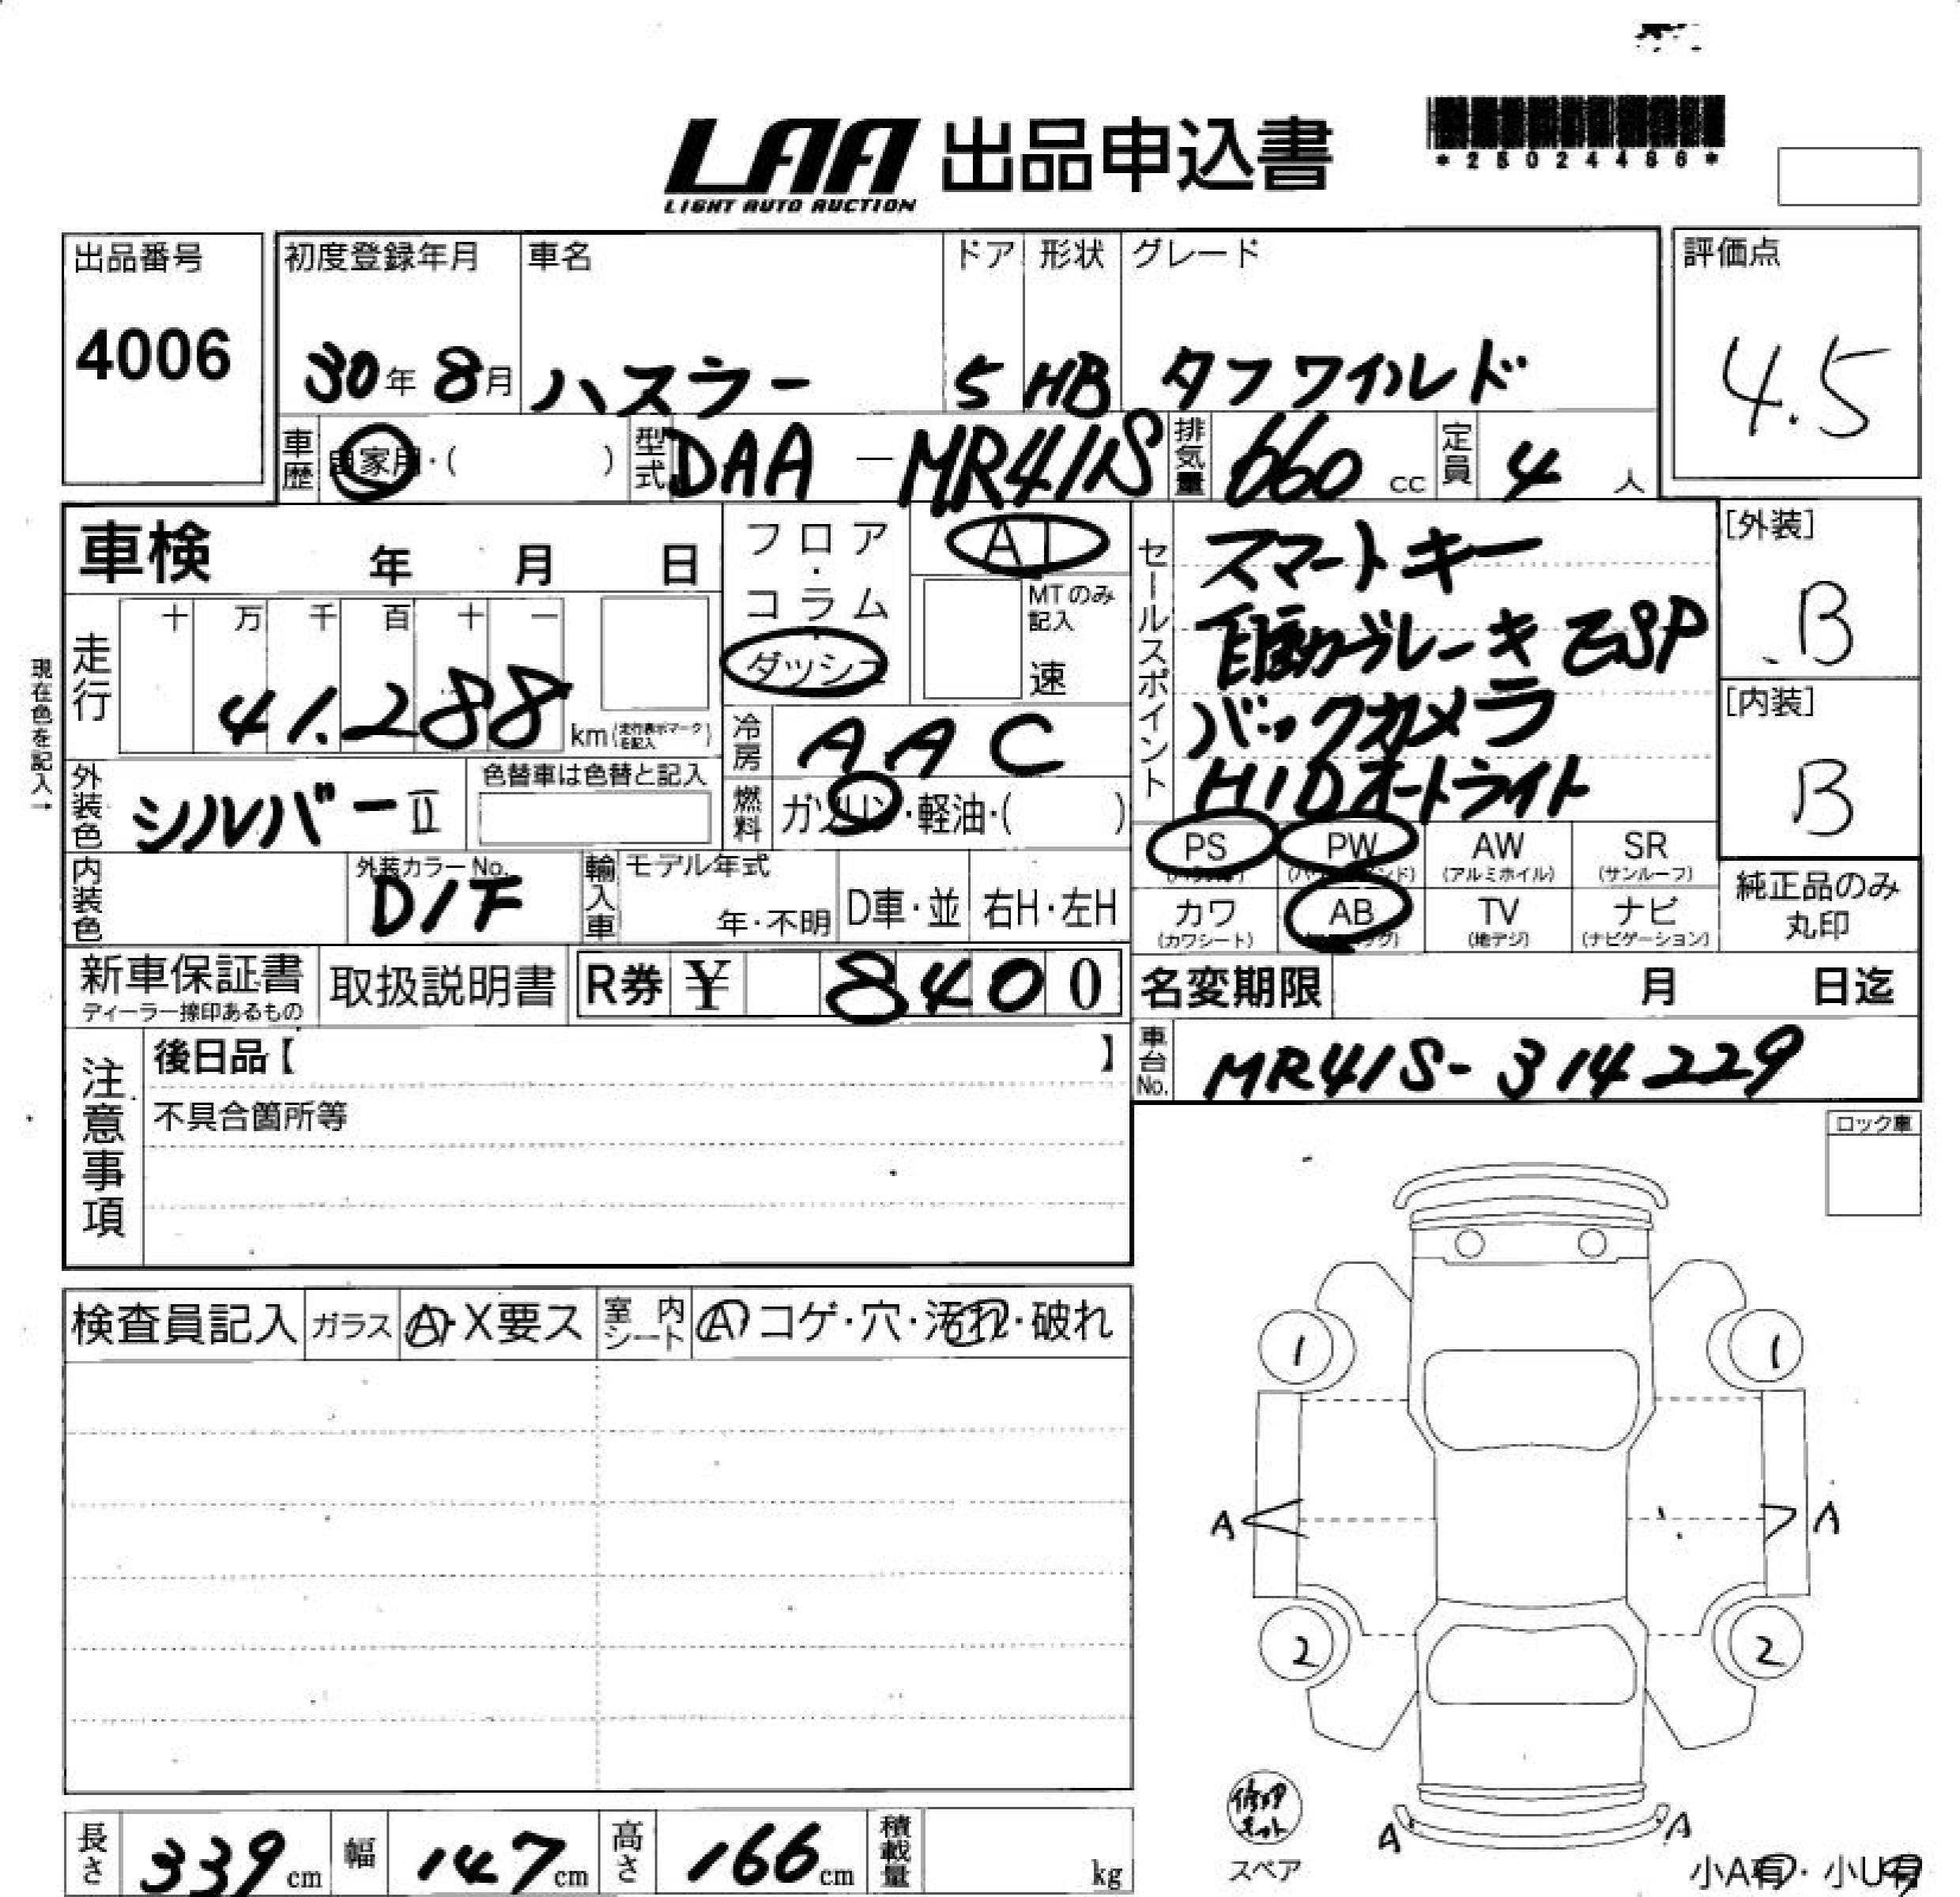 LAA 出品申込書
LIGHT AUTO AUCTION
*25024486*
出品番号 初度登録年月 車名 ドア 形状 グレード 評価点
4006 30年 8月 ハスラー 5 HB タフワイルド 4.5
車歴 自家用・( ) 型式 DAA－MR41S 排気量 660 cc 定員 4 人
車検 年 月 日
フロア・コラム
ダッシュ
AT
MTのみ記入
速
セールスポイント
スマートキー
自動ブレーキ ESP
バックカメラ
HIDオートライト
[外装]
B
[内装]
B
現在色を記入→
走行 十 万 千 百 十 一
41.288 km (走行表示マークを記入)
冷房 AAC
外装色 シルバーII 色替車は色替と記入
燃料 ガソリン・軽油・( )
PS PW AW SR
(アルミホイル) (サンルーフ)
カワ AB TV ナビ
(カワシート) (地デジ) (ナビゲーション)
純正品のみ
丸印
内装色 外装カラーNo. D1F 輸入車 モデル年式 年・不明 D車・並 右H・左H
新車保証書 取扱説明書 R券 ¥ 8400 名変期限 月 日迄
ディーラー捺印あるもの
注意事項
後日品【 】
不具合箇所等
車台No. MR41S-314229
ロック車
検査員記入 ガラス A・X要ス 室内シート A コゲ・穴・汚れ・破れ
1 1
A A
2 2
A A
スペア
小A有・小U有
長さ 339 cm 幅 147 cm 高さ 166 cm 積載量 kg